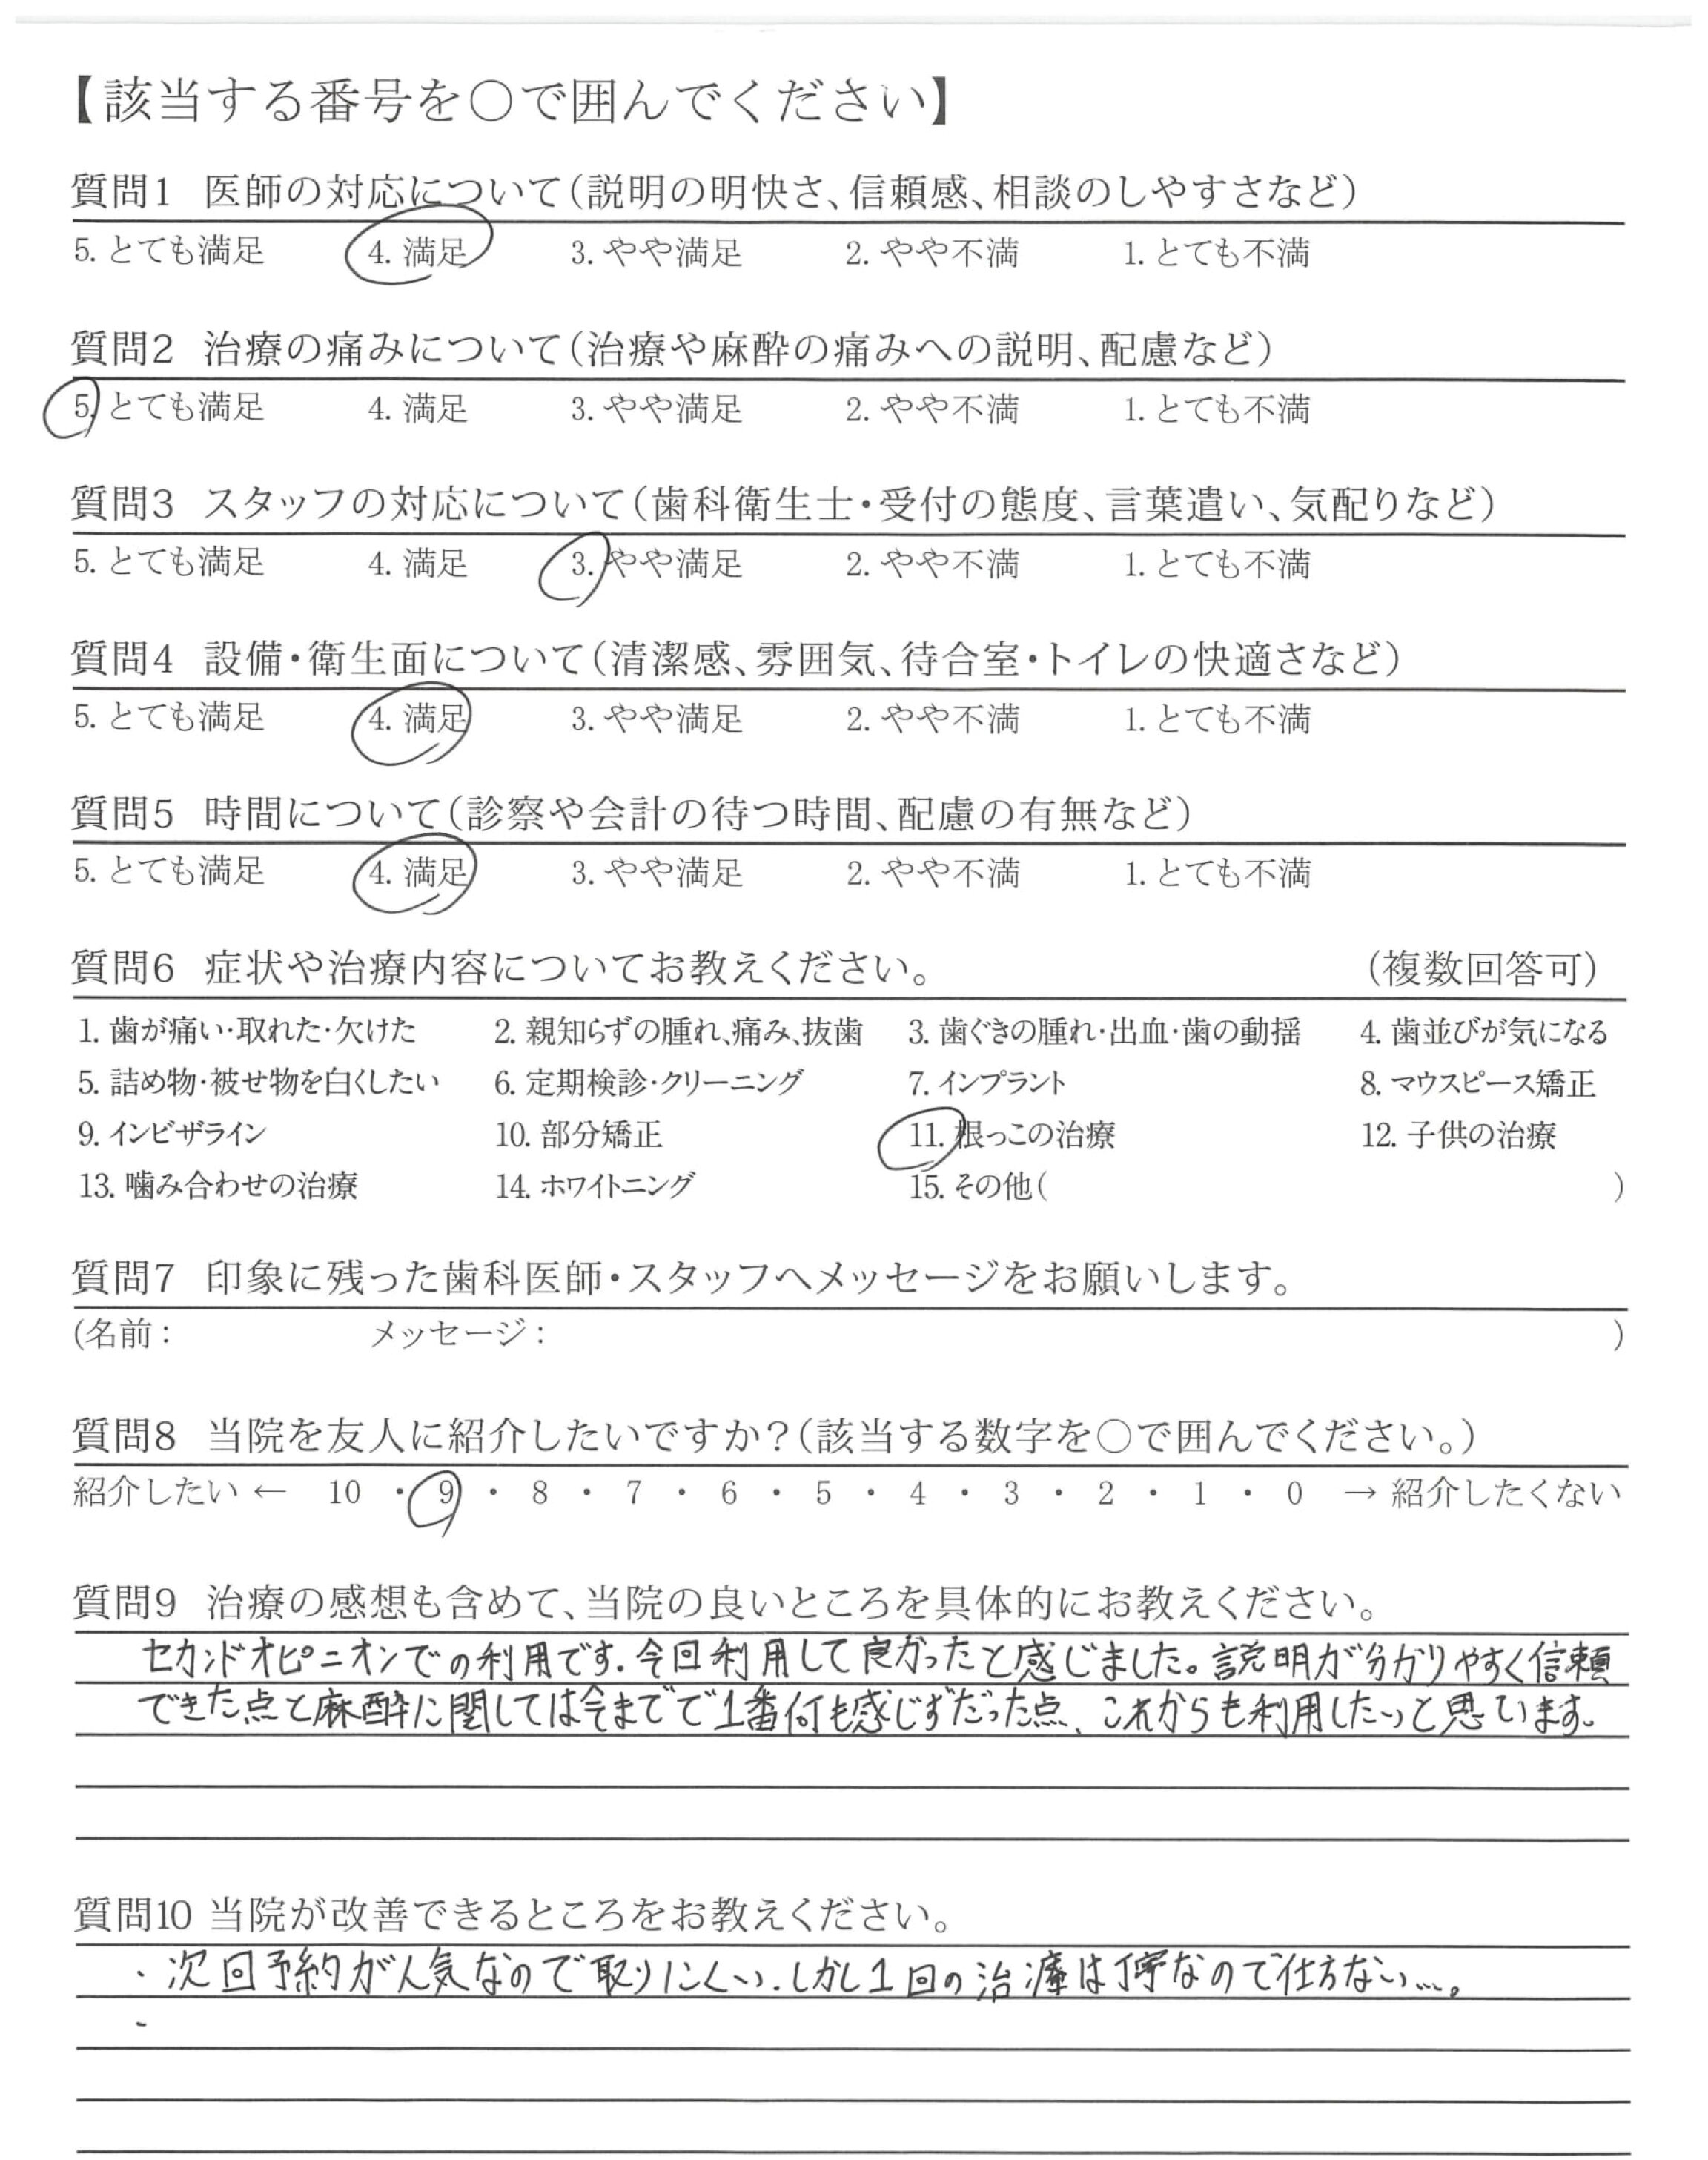 【該当する番号を○で囲んでください】
質問1 医師の対応について（説明の明快さ、信頼感、相談のしやすさなど）
5. とても満足 4. 満足 3. やや満足 2. やや不満 1. とても不満
質問2 治療の痛みについて（治療や麻酔の痛みへの説明、配慮など）
5. とても満足 4. 満足 3. やや満足 2. やや不満 1. とても不満
質問3 スタッフの対応について（歯科衛生士・受付の態度、言葉遣い、気配りなど）
5. とても満足 4. 満足 3. やや満足 2. やや不満 1. とても不満
質問4 設備・衛生面について（清潔感、雰囲気、待合室・トイレの快適さなど）
5. とても満足 4. 満足 3. やや満足 2. やや不満 1. とても不満
質問5 時間について（診察や会計の待つ時間、配慮の有無など）
5. とても満足 4. 満足 3. やや満足 2. やや不満 1. とても不満
質問6 症状や治療内容についてお教えください。 （複数回答可）
1. 歯が痛い・取れた・欠けた 2. 親知らずの腫れ、痛み、抜歯 3. 歯ぐきの腫れ・出血・歯の動揺 4. 歯並びが気になる
5. 詰め物・被せ物を白くしたい 6. 定期検診・クリーニング 7. インプラント 8. マウスピース矯正
9. インビザライン 10. 部分矯正 11. 根っこの治療 12. 子供の治療
13. 噛み合わせの治療 14. ホワイトニング 15. その他（ ）
質問7 印象に残った歯科医師・スタッフへメッセージをお願いします。
（名前： メッセージ： ）
質問8 当院を友人に紹介したいですか？（該当する数字を○で囲んでください。）
紹介したい ← 10 ・ 9 ・ 8 ・ 7 ・ 6 ・ 5 ・ 4 ・ 3 ・ 2 ・ 1 ・ 0 → 紹介したくない
質問9 治療の感想も含めて、当院の良いところを具体的にお教えください。
セカンドオピニオンでの利用です。今回利用して良かったと感じました。説明が分かりやすく信頼
できた点と麻酔に関しては今までで1番何も感じずだった点、これからも利用したいと思います。
質問10 当院が改善できるところをお教えください。
・次回予約が人気なので取りにくい。しかし1回の治療は丁寧なので仕方ない…。